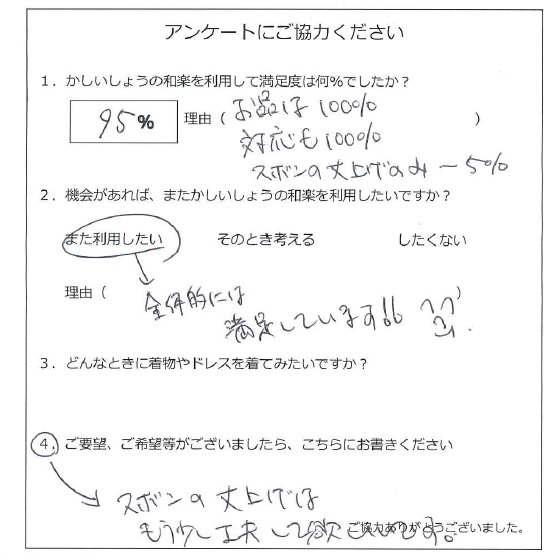 アンケートにご協力ください
1．かしいしょうの和楽を利用して満足度は何%でしたか？
95%　理由（お品は100%）
対応も100%
スボンの丈上げのみ－5%
2．機会があれば、またかしいしょうの和楽を利用したいですか？
また利用したい　そのとき考える　したくない
理由（全体的には
満足しています!!）
3．どんなときに着物やドレスを着てみたいですか？
4．ご要望、ご希望等がございましたら、こちらにお書きください
スボンの丈上げは
もう少し工夫して欲しいです。
ご協力ありがとうございました。